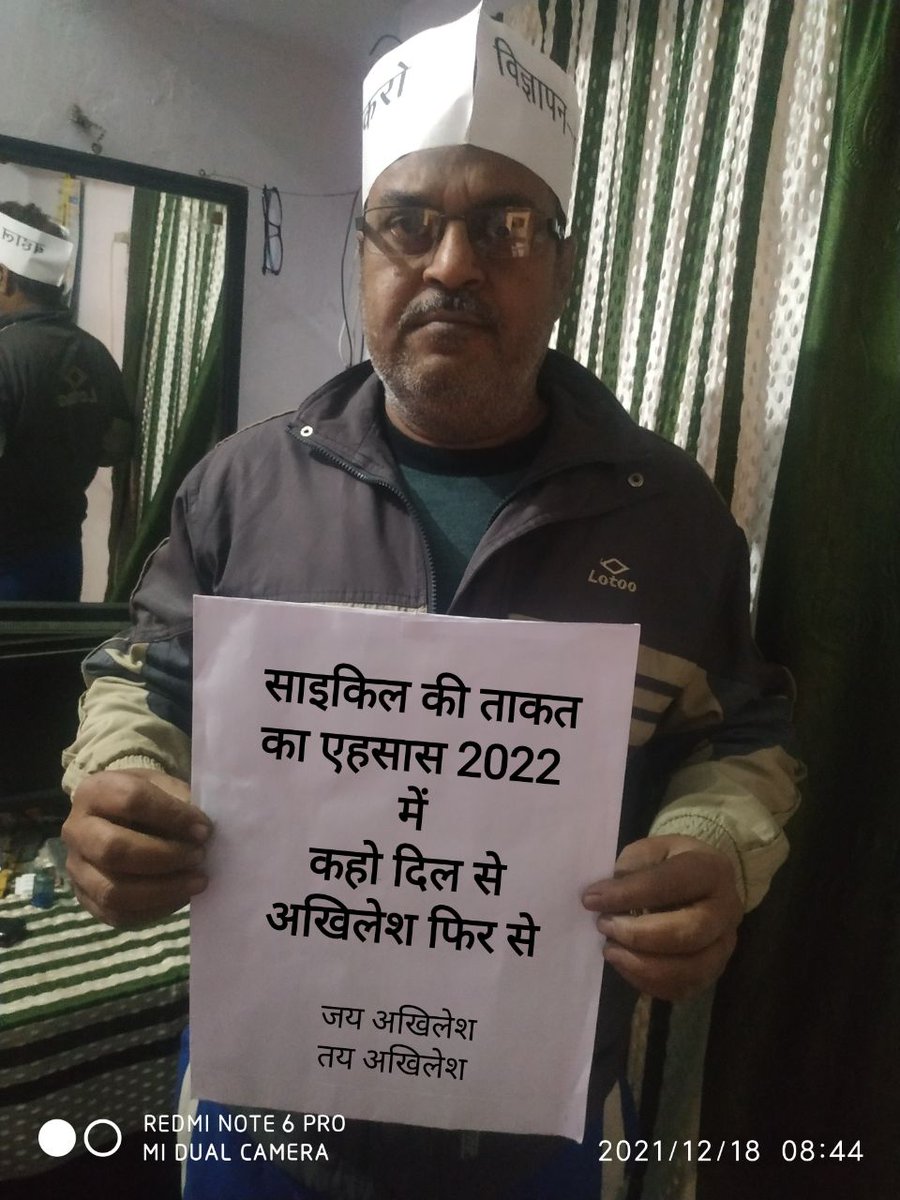 करो
विज्ञापन
बहाल
Lotoo
साइकिल की ताकत
का एहसास 2022
में
कहो दिल से
अखिलेश फिर से
जय अखिलेश
तय अखिलेश
REDMI NOTE 6 PRO
MI DUAL CAMERA
2021/12/18 08:44